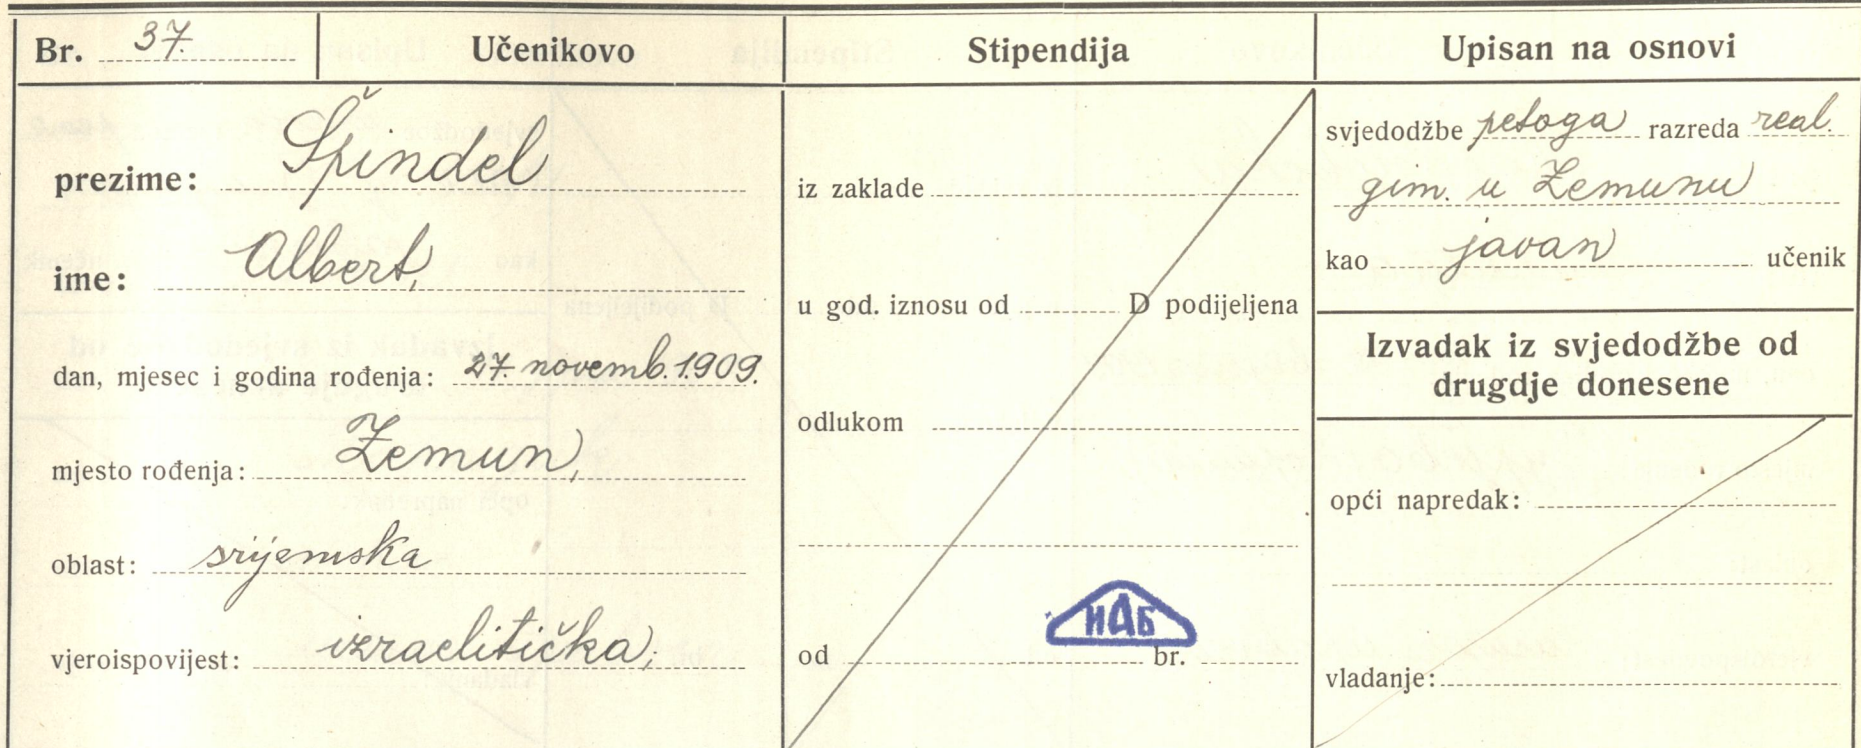 Br. 37
Učenikovo
prezime: Špindel
ime: Albert,
dan, mjesec i godina rođenja: 27. novemb. 1909.
mjesto rođenja: Zemun,
oblast: srijemska
vjeroispovijest: izraelitička;
Stipendija
iz zaklade
u god. iznosu od D podijeljena
odlukom
ИАБ
od br.
Upisan na osnovi
svjedodžbe petoga razreda real.
gim. u Zemunu
kao javan učenik
Izvadak iz svjedodžbe od
drugdje donesene
opći napredak:
vladanje: